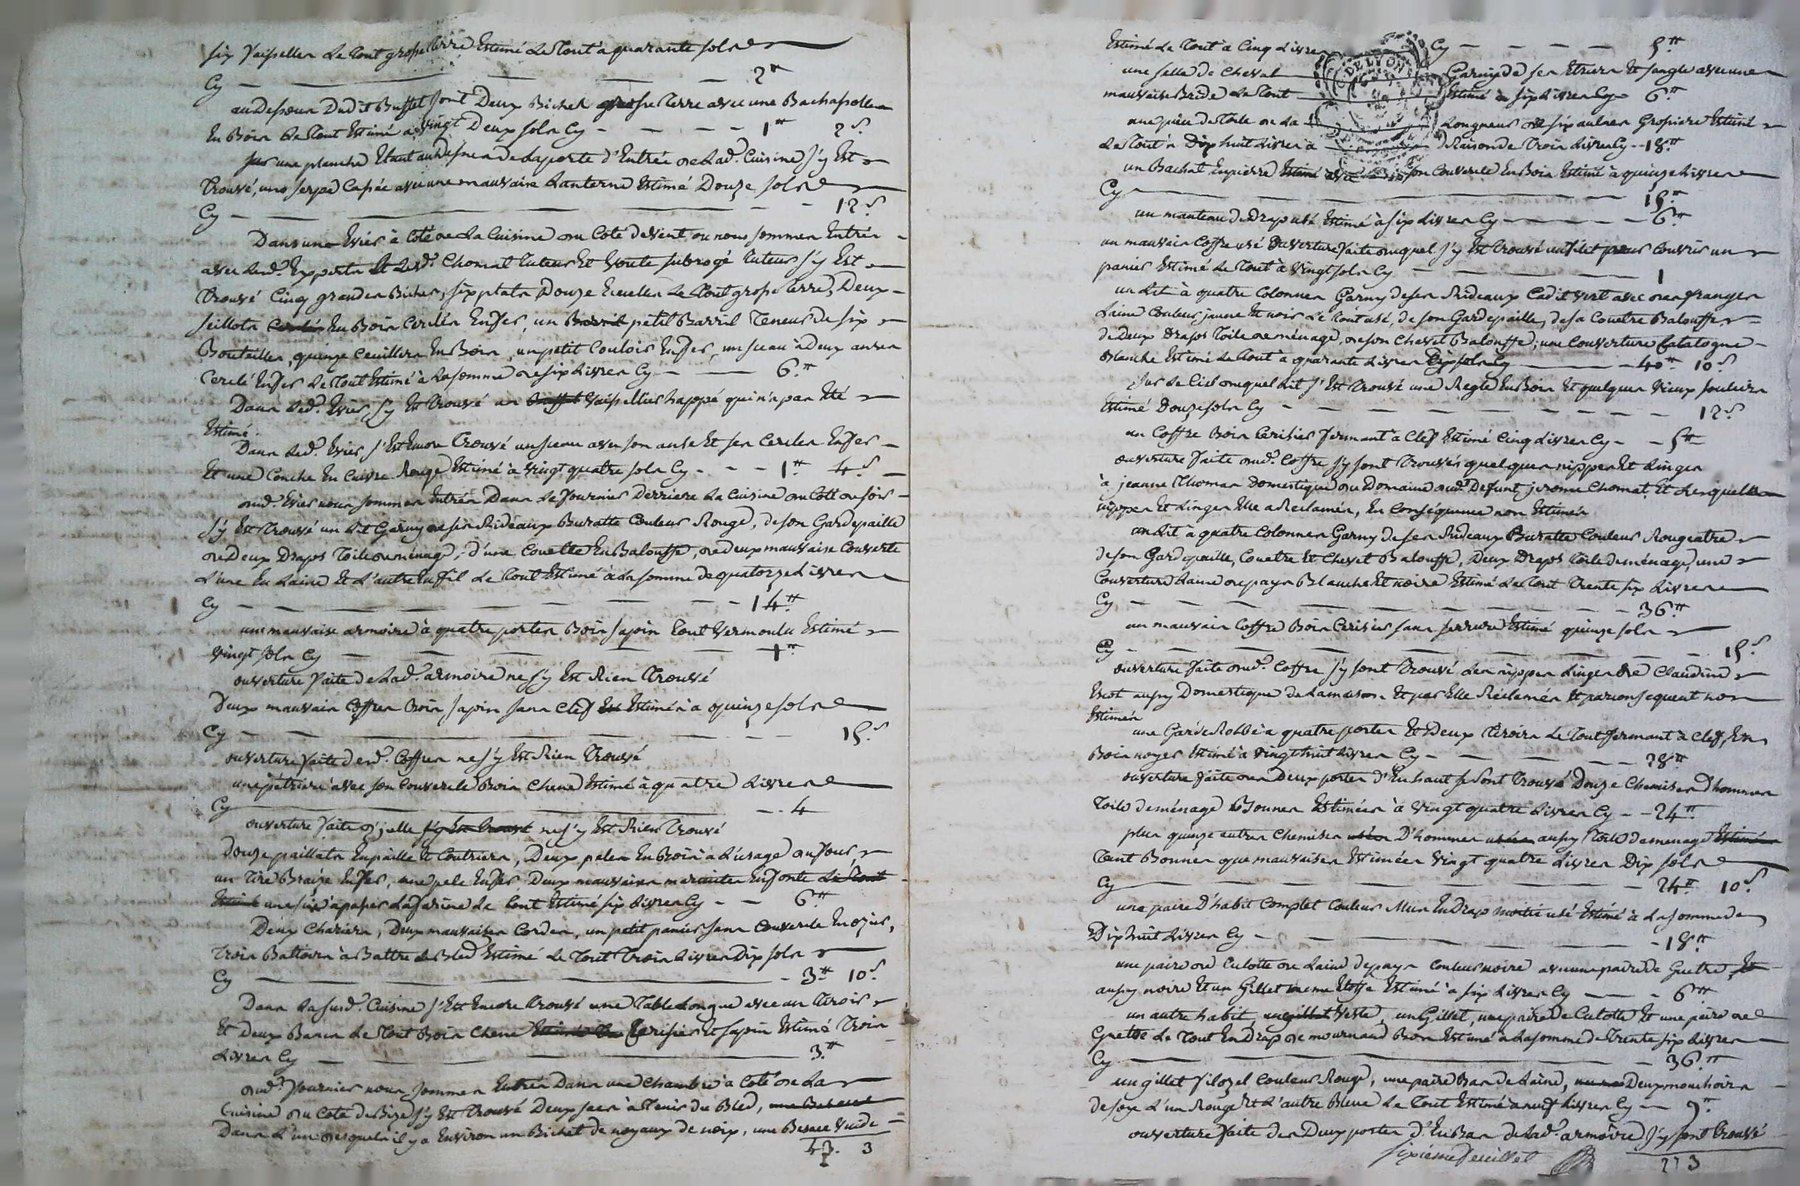 six Vaisselles Le Tout grosse Terre Estimé Le Tout a quarante sols
Cy — 2tt
au Dessous Dudit Buffet sont Deux Bichet grosse Terre avec une Bachassolle
En Bois Le Tout Estimé a vingt Deux sols Cy — 1tt 2s
sur une planche Etant au Dessus de La porte d'Entrée de Lad. Cuisine s'y Est
Trouvé, une serpe Capée avec une mauvaise Lanterne Estimé Douze sols
Cy — 12s
Dans une Evier à Coté de La Cuisine du Coté de Vent ou nous sommes Entrés
avec Lesd. Experts et Led. Chomat Tuteur Et Voute subrogé Tuteur s'y Est
Trouvé Cinq grandes Biches, six plats Douze Ecuelles Le Tout grosse Terre, Deux
seillots Cerclés En Bois Cerclés En fer, un Barril petit Barril Teneur de six
Bouteilles, quinze Cuillers En Bois, un petit Coulois En fer, un seau à Deux anses
Cerclé En fer Le Tout Estimé à La somme de six Livres Cy — 6tt
Dans Led. Evier, s'y Est Trouvé un Buffet Vaissellier happé qui n'a pas Eté
Estimé.
Dans Led. Evier s'Est Encore Trouvé un seau avec son anse Et ses Cercles En fer
Et une Conche En Cuivre Rouge Estimé à Vingt quatre sols Cy — 1tt 4s
dud. Evier nous sommes Entrés Dans Le fournier Derriere La Cuisine du Coté de soir
s'y Est Trouvé un Lit Garny de ses Rideaux Buratte Couleur Rouge, de son Gardepaille
de Deux Draps Toile de ménage, d'une Couette En Balouffe, de deux mauvaise Couverte
L'une En Laine Et L'autre En fil Le Tout Estimé à La somme de quatorze Livres
Cy — 14tt
une mauvaise armoire à quatre portes Bois sapin Tout Vermoulu Estimé
vingt sols Cy — 1tt
ouverture faite de Lad. armoire ne s'y Est Rien Trouvé
Deux mauvais Coffres Bois sapin sans Clef Est Estimés à quinze sols
Cy — 15s
ouverture faite desd. Coffres ne s'y Est Rien Trouvé
une pétriere avec son Couvercle Bois Chene Estimé à quatre Livres
Cy — 4
ouverture faite d'jcelle s'y Est Trouvé ne s'y Est Rien Trouvé
Douze paillats En paille Et Coutriers, Deux peles En Bois à L'usage du four,
un Tire Braize En fer, une pele En fer Deux mauvaises marmites En fonte Le Tout
Estimé une à passer La farine Le Tout Estimé six Livres Cy — 6tt
Deux Chariers, Deux mauvaises Cordes, un petit panier sans Couvercle En ozier,
Trois Battoirs à Battre Le Bled Estimé Le Tout Trois Livres Dix sols
Cy — 3tt 10s
Dans La susd. Cuisine s'Est Encore Trouvé une Table Longue avec un Tiroir
Et Deux Bancs Le Tout Bois Chene Cerisier Et sapin Estimé Trois
Livres Cy — 3tt
dud. fournier nous sommes Entrés Dans une Chambre à Coté de La
Cuisine du Coté de Bize s'y Est Trouvé Deux sacs à Tenir du Bled,
Dans L'un desquels il y a Environ un Bichet de noyaux de noix, une Besace Vuide
43 3
Estimé Le Tout à Cinq Livres Cy — 5tt
une selle de Cheval Garnye de ses Etriers Et sangle avec une
mauvaise Bride Le Tout Estimé à six Livres Cy 6tt
une piece de Toile de La Longueur de six aulnes Grossiere Estimé
Le Tout à Dix huit Livres à Raison de Trois Livres Cy — 18tt
un Bachat En pierre Estimé avec son Couvercle En Bois Estimé à quinze Livres
Cy — 15tt
un manteau de Drap usé Estimé à six Livres Cy — 6tt
un mauvais Coffre usé ouverture faite duquel s'y Est Trouvé un filet pour Couvrir un
panier Estimé Le Tout à Vingt sols Cy — 1
un Lit à quatre Colonnes Garny de ses Rideaux Cadit vert avec des franges
Laine Couleur jaune Et noir Le Tout usé, de son Gardepaille, de sa Couetre Balouffe
de Deux Draps Toile de ménage, de son Chevet Balouffe; une Couverture Catalogne
Blanche Estimé Le Tout à quarante Livres Dix sols Cy — 40tt 10s
sur Le Ciel duquel Lit s'Est Trouvé une Regle En Bois Et quelques Vieux souliers
Estimé Douze sols Cy — 12s
un Coffre Bois Cerisier fermant à Clef Estimé Cinq Livres Cy — 5tt
ouverture faite dud. Coffre s'y sont Trouvés quelques nippes Et Linges
à jeanne Thomas Domestique du Domaine dud. Defunt jerome Chomat, Et Lesquelles
nippes Et Linges Elle a Reclamés, En Conséquence non Estimés
un Lit à quatre Colonnes Garny de ses Rideaux Buratte Couleur Rougeatre
de son Gardepaille, Couetre Et Chevet Balouffe, Deux Draps Toile de ménage, une
Couverture Laine de pays Blanche Et noire Estimé Le Tout Trente six Livres
Cy — 36tt
un mauvais Coffre Bois Cerisier sans serrure Estimé quinze sols
Cy — 15s
ouverture faite dud. Coffre s'y sont Trouvé, Les nippes Linges de Claudine
Escot aussy Domestique de La maison Et par Elle Réclamés Et par Consequent non
Estimés
une Garde Robbe à quatre portes Et Deux Tiroirs Le Tout fermant à Clef En
Bois noyer Estimé à Vingt huit Livres Cy — 28tt
ouverture faite des Deux portes d'En haut se sont Trouvé Douze Chemises D'hommes
Toile de ménage Bonnes Estimées à Vingt quatre Livres Cy — 24tt
plus quinze autres Chemises usées D'hommes usées aussy Toile de menage Estimées
Tant Bonnes que mauvaises Estimées Vingt quatre Livres Dix sols
Cy — 24tt 10s
une paire D'habit Complet Couleur Mur En Drap moitié usé Estimé à La somme de
Dix huit Livres Cy — 18tt
une paire de Culotte de Laine de pays Couleur noire avec une paire de Guetre Et
aussy noire Et un Gillet meme Etoffe Estimé à six Livres Cy — 6tt
un autre habit, un gillet Veste, un Gillet, une paire De Culotte Et une paire de
Guettre Le Tout En Drap de mournand Bron Estimé à La somme de Trente six Livres
Cy — 36tt
un gillet filozel Couleur Rouge, une paire Bas de Laine, Deux mouchoirs
de soye L'un Rouge Et L'autre Bleue Le Tout Estimé à neuf Livres Cy — 9tt
ouverture faite des Deux portes D'En Bas de Lad. armoire s'y sont Trouvé
sixieme feuillet
273
DE LYON